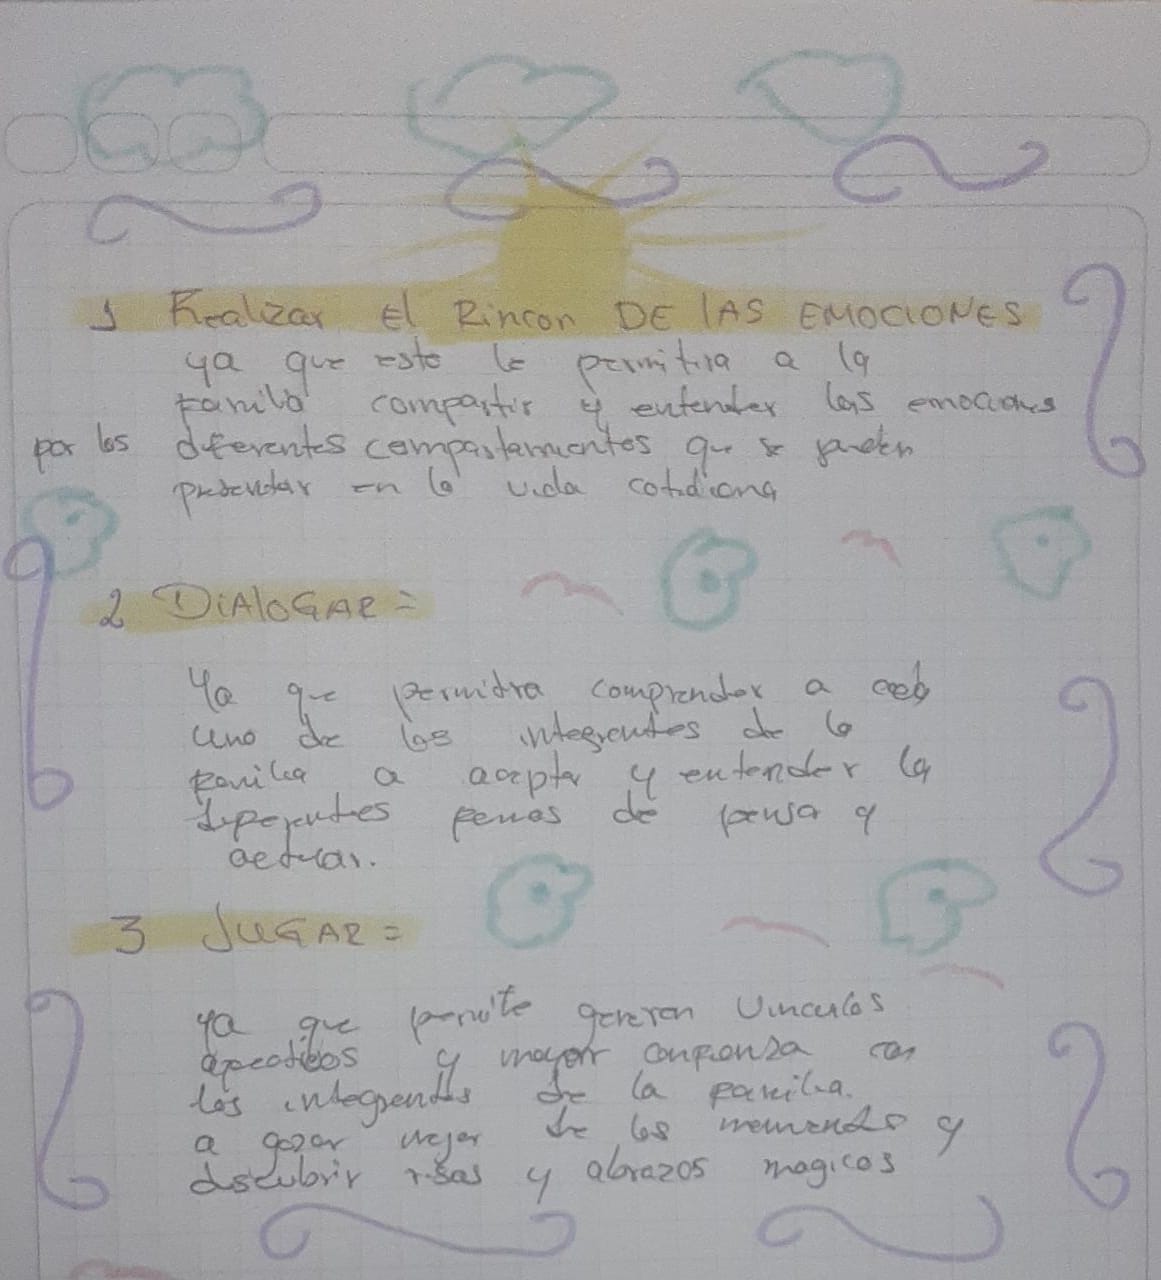 1 Realizar El Rincon DE lAS EMOCIONES
ya que esto le permitira a la
familia compartir y entender las emociones
por los diferentes comportamientos que se pueden
presentar en la vida cotidiana
2 DiAloGAR =
Ya que permitira comprender a cada
uno de los integrantes de la
familia a aceptar y entender la
diferentes formas de pensar y
actuar.
3 JUGAR =
ya que permite generar vinculos
afectibos y mayor confianza con
los integrantes de la familia.
a gozar mejor de los momentos y
descubrir risas y abrazos magicos